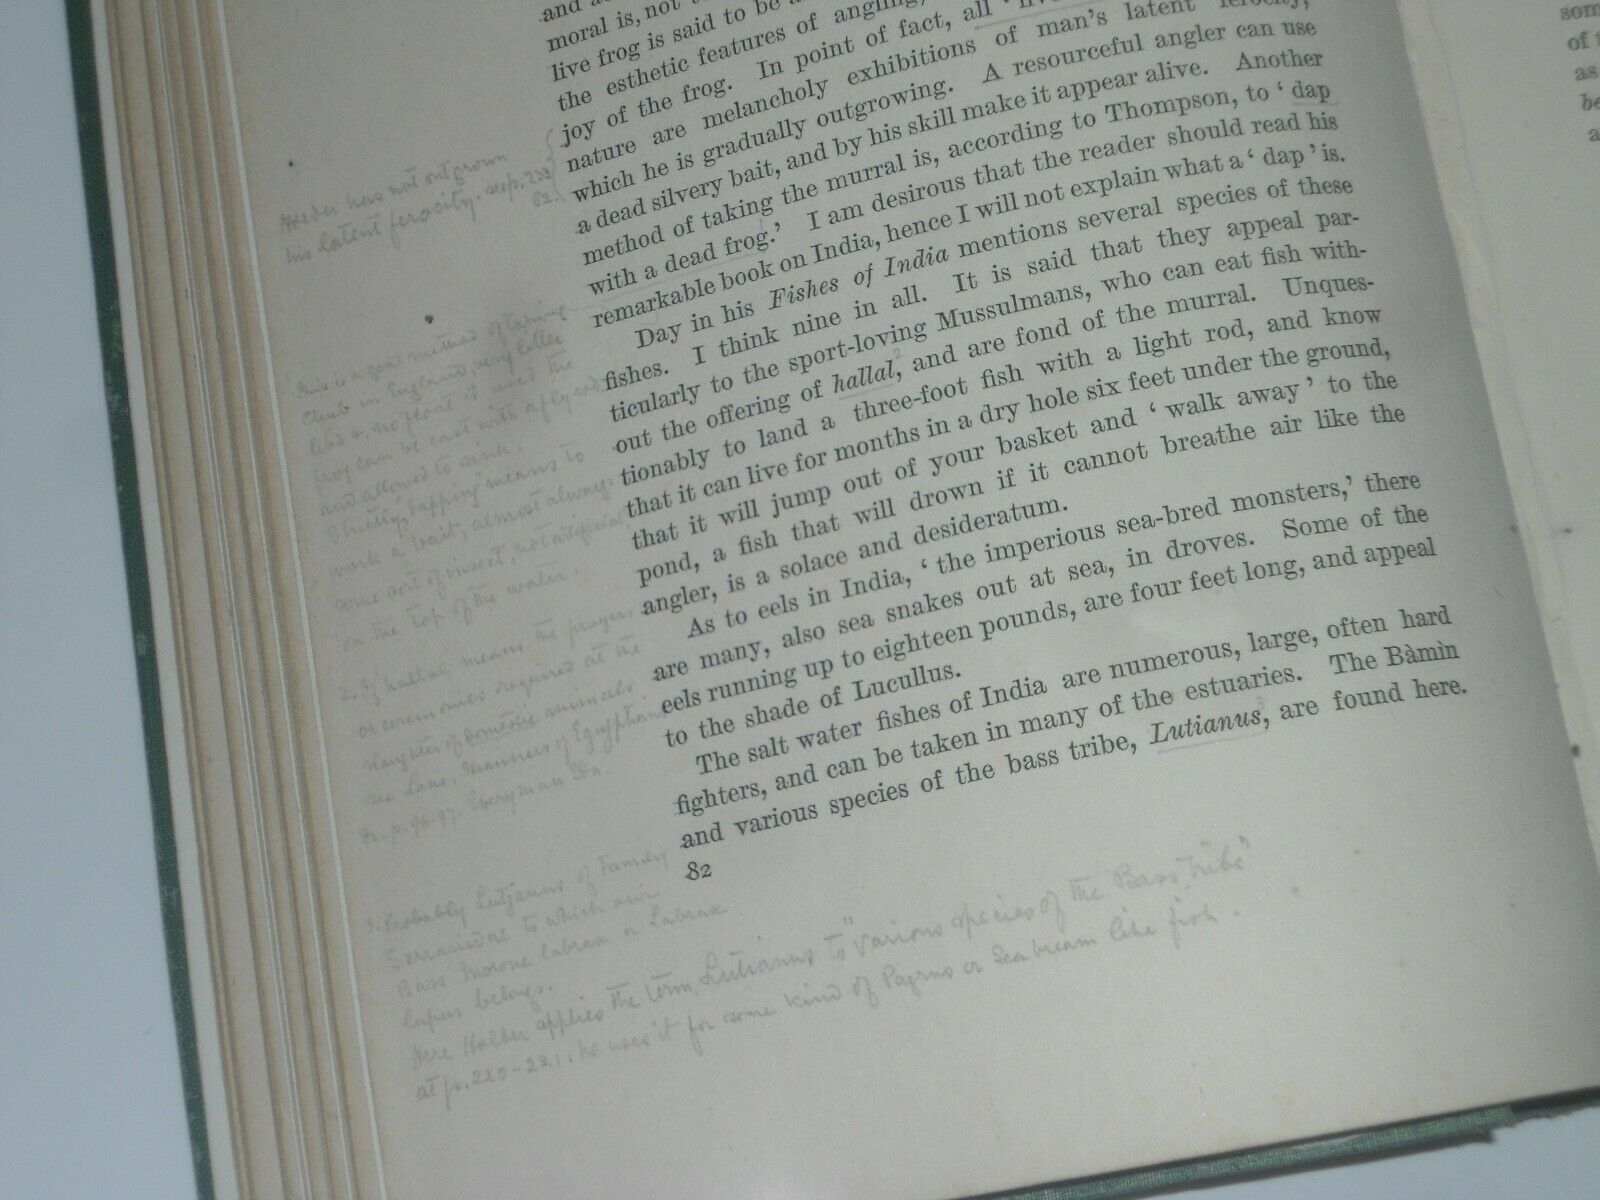 and
moral is, not
live frog is said to be a
the esthetic features of angling,
joy of the frog. In point of fact, all ' live
nature are melancholy exhibitions of man's latent ferocity,
which he is gradually outgrowing. A resourceful angler can use
a dead silvery bait, and by his skill make it appear alive. Another
method of taking the murral is, according to Thompson, to ' dap
with a dead frog.' I am desirous that the reader should read his
remarkable book on India, hence I will not explain what a ' dap ' is.
Day in his Fishes of India mentions several species of these
fishes. I think nine in all. It is said that they appeal par-
ticularly to the sport-loving Mussulmans, who can eat fish with-
out the offering of hallal, and are fond of the murral. Unques-
tionably to land a three-foot fish with a light rod, and know
that it can live for months in a dry hole six feet under the ground,
that it will jump out of your basket and ' walk away ' to the
pond, a fish that will drown if it cannot breathe air like the
angler, is a solace and desideratum.
As to eels in India, ' the imperious sea-bred monsters,' there
are many, also sea snakes out at sea, in droves. Some of the
eels running up to eighteen pounds, are four feet long, and appeal
to the shade of Lucullus.
The salt water fishes of India are numerous, large, often hard
fighters, and can be taken in many of the estuaries. The Bàmìn
and various species of the bass tribe, Lutianus, are found here.
82
Holder has not outgrown
his latent ferocity. see p. 223
82.
This is a good method of taking
Chub in England, very little
lead & no float is used the
frog can be cast with a fly rod
and allowed to sink.
Strictly, "dapping" means to
work a bait, almost always
some sort of insect, not artificial,
on the top of the water.
2. If hallal means the prayers
or ceremonies required at the
slaughter of domestic animals,
see Lane, Manners of Egyptians
p. 96-97. Everyman Edn.
3. Probably Lutjanus of Family
Serranidae to which our
Bass Morone labrax or Labrax
lupus belongs.
Here Holder applies the term Lutianus to "various species of the Bass tribe"
at p. 220-221. he uses it for some kind of Pagrus or Sea bream like fish.
som
of t
as
be
a